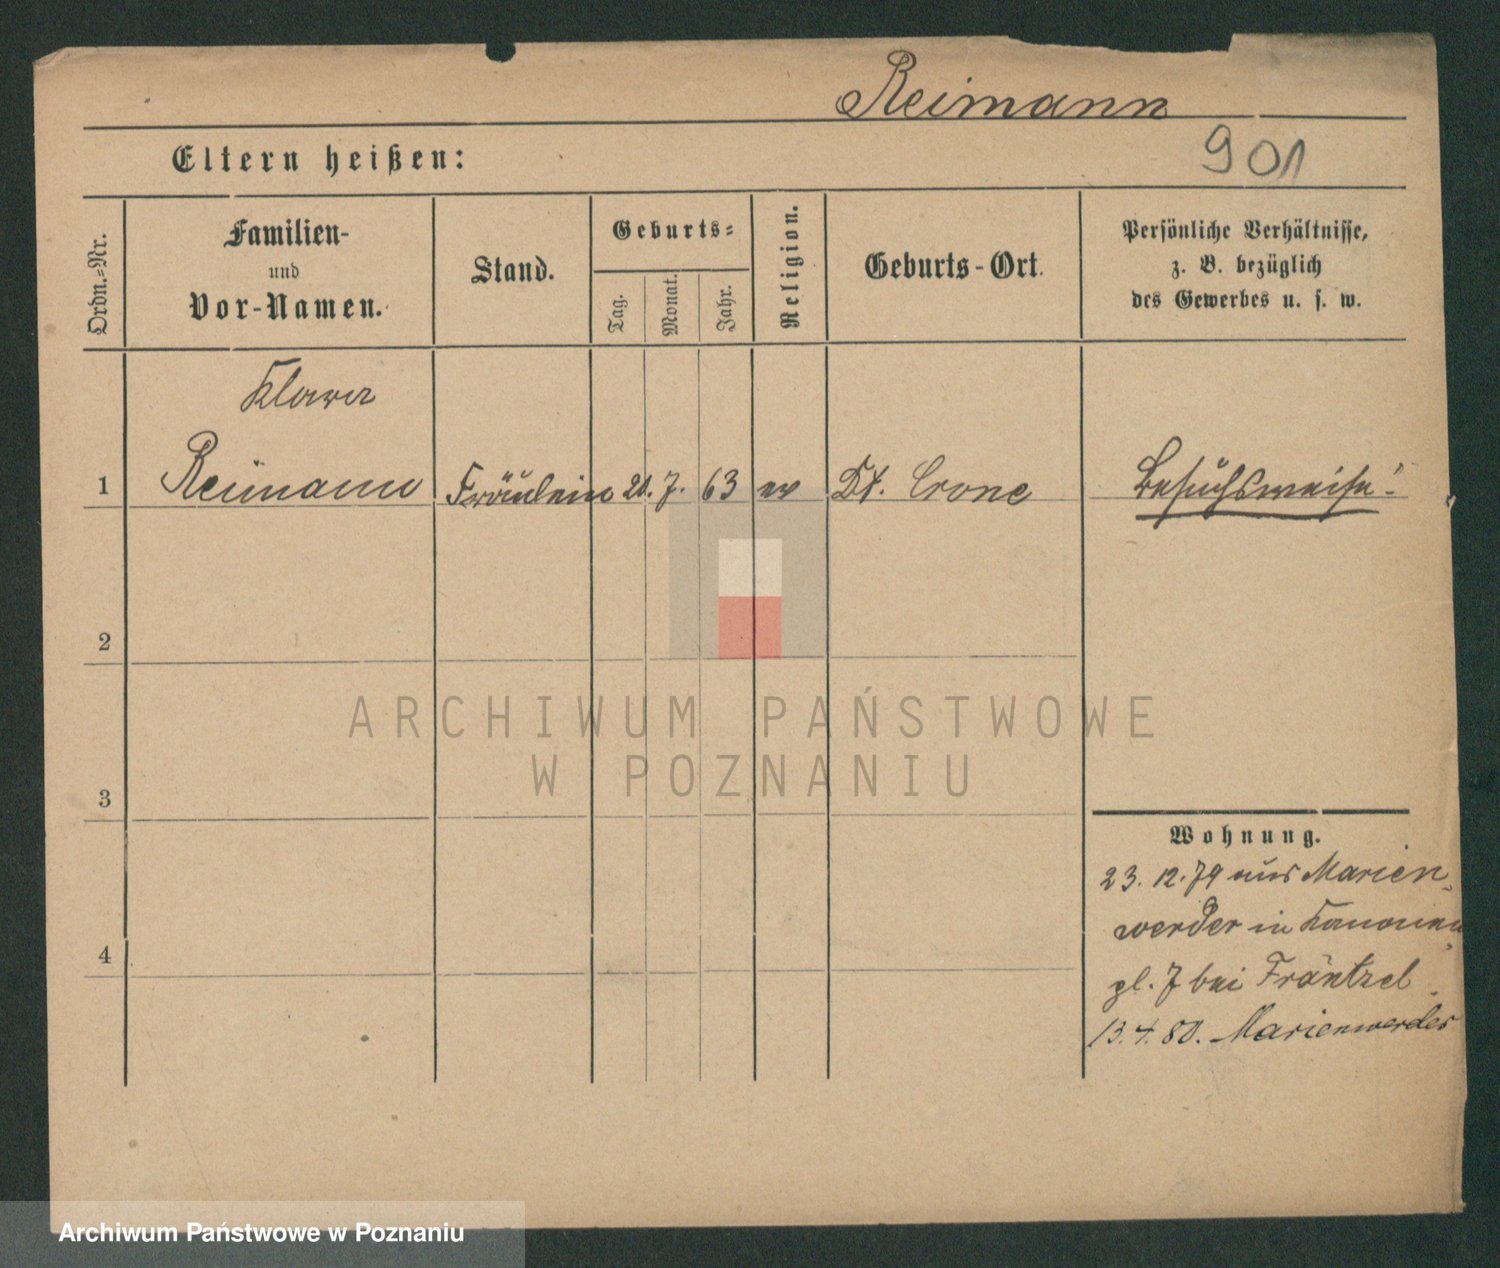 Reimann
901
Eltern heißen:
Ordn.=Nr.
Familien-
und
Vor-Namen.
Stand.
Geburts=
Tag.
Monat.
Jahr.
Religion.
Geburts-Ort.
Persönliche Verhältnisse,
z. B. bezüglich
des Gewerbes u. s. w.
Klara
1 Reimann Fräulein 20. 7. 63 ev Dt. Crone Besuchsweise!
2
3
4
Wohnung.
23. 12. 79 aus Marien-
werder in Kanonen-
pl. 7 bei Fräntzel
13. 4. 80. Marienwerder
ARCHIWUM PAŃSTWOWE
W POZNANIU
Archiwum Państwowe w Poznaniu